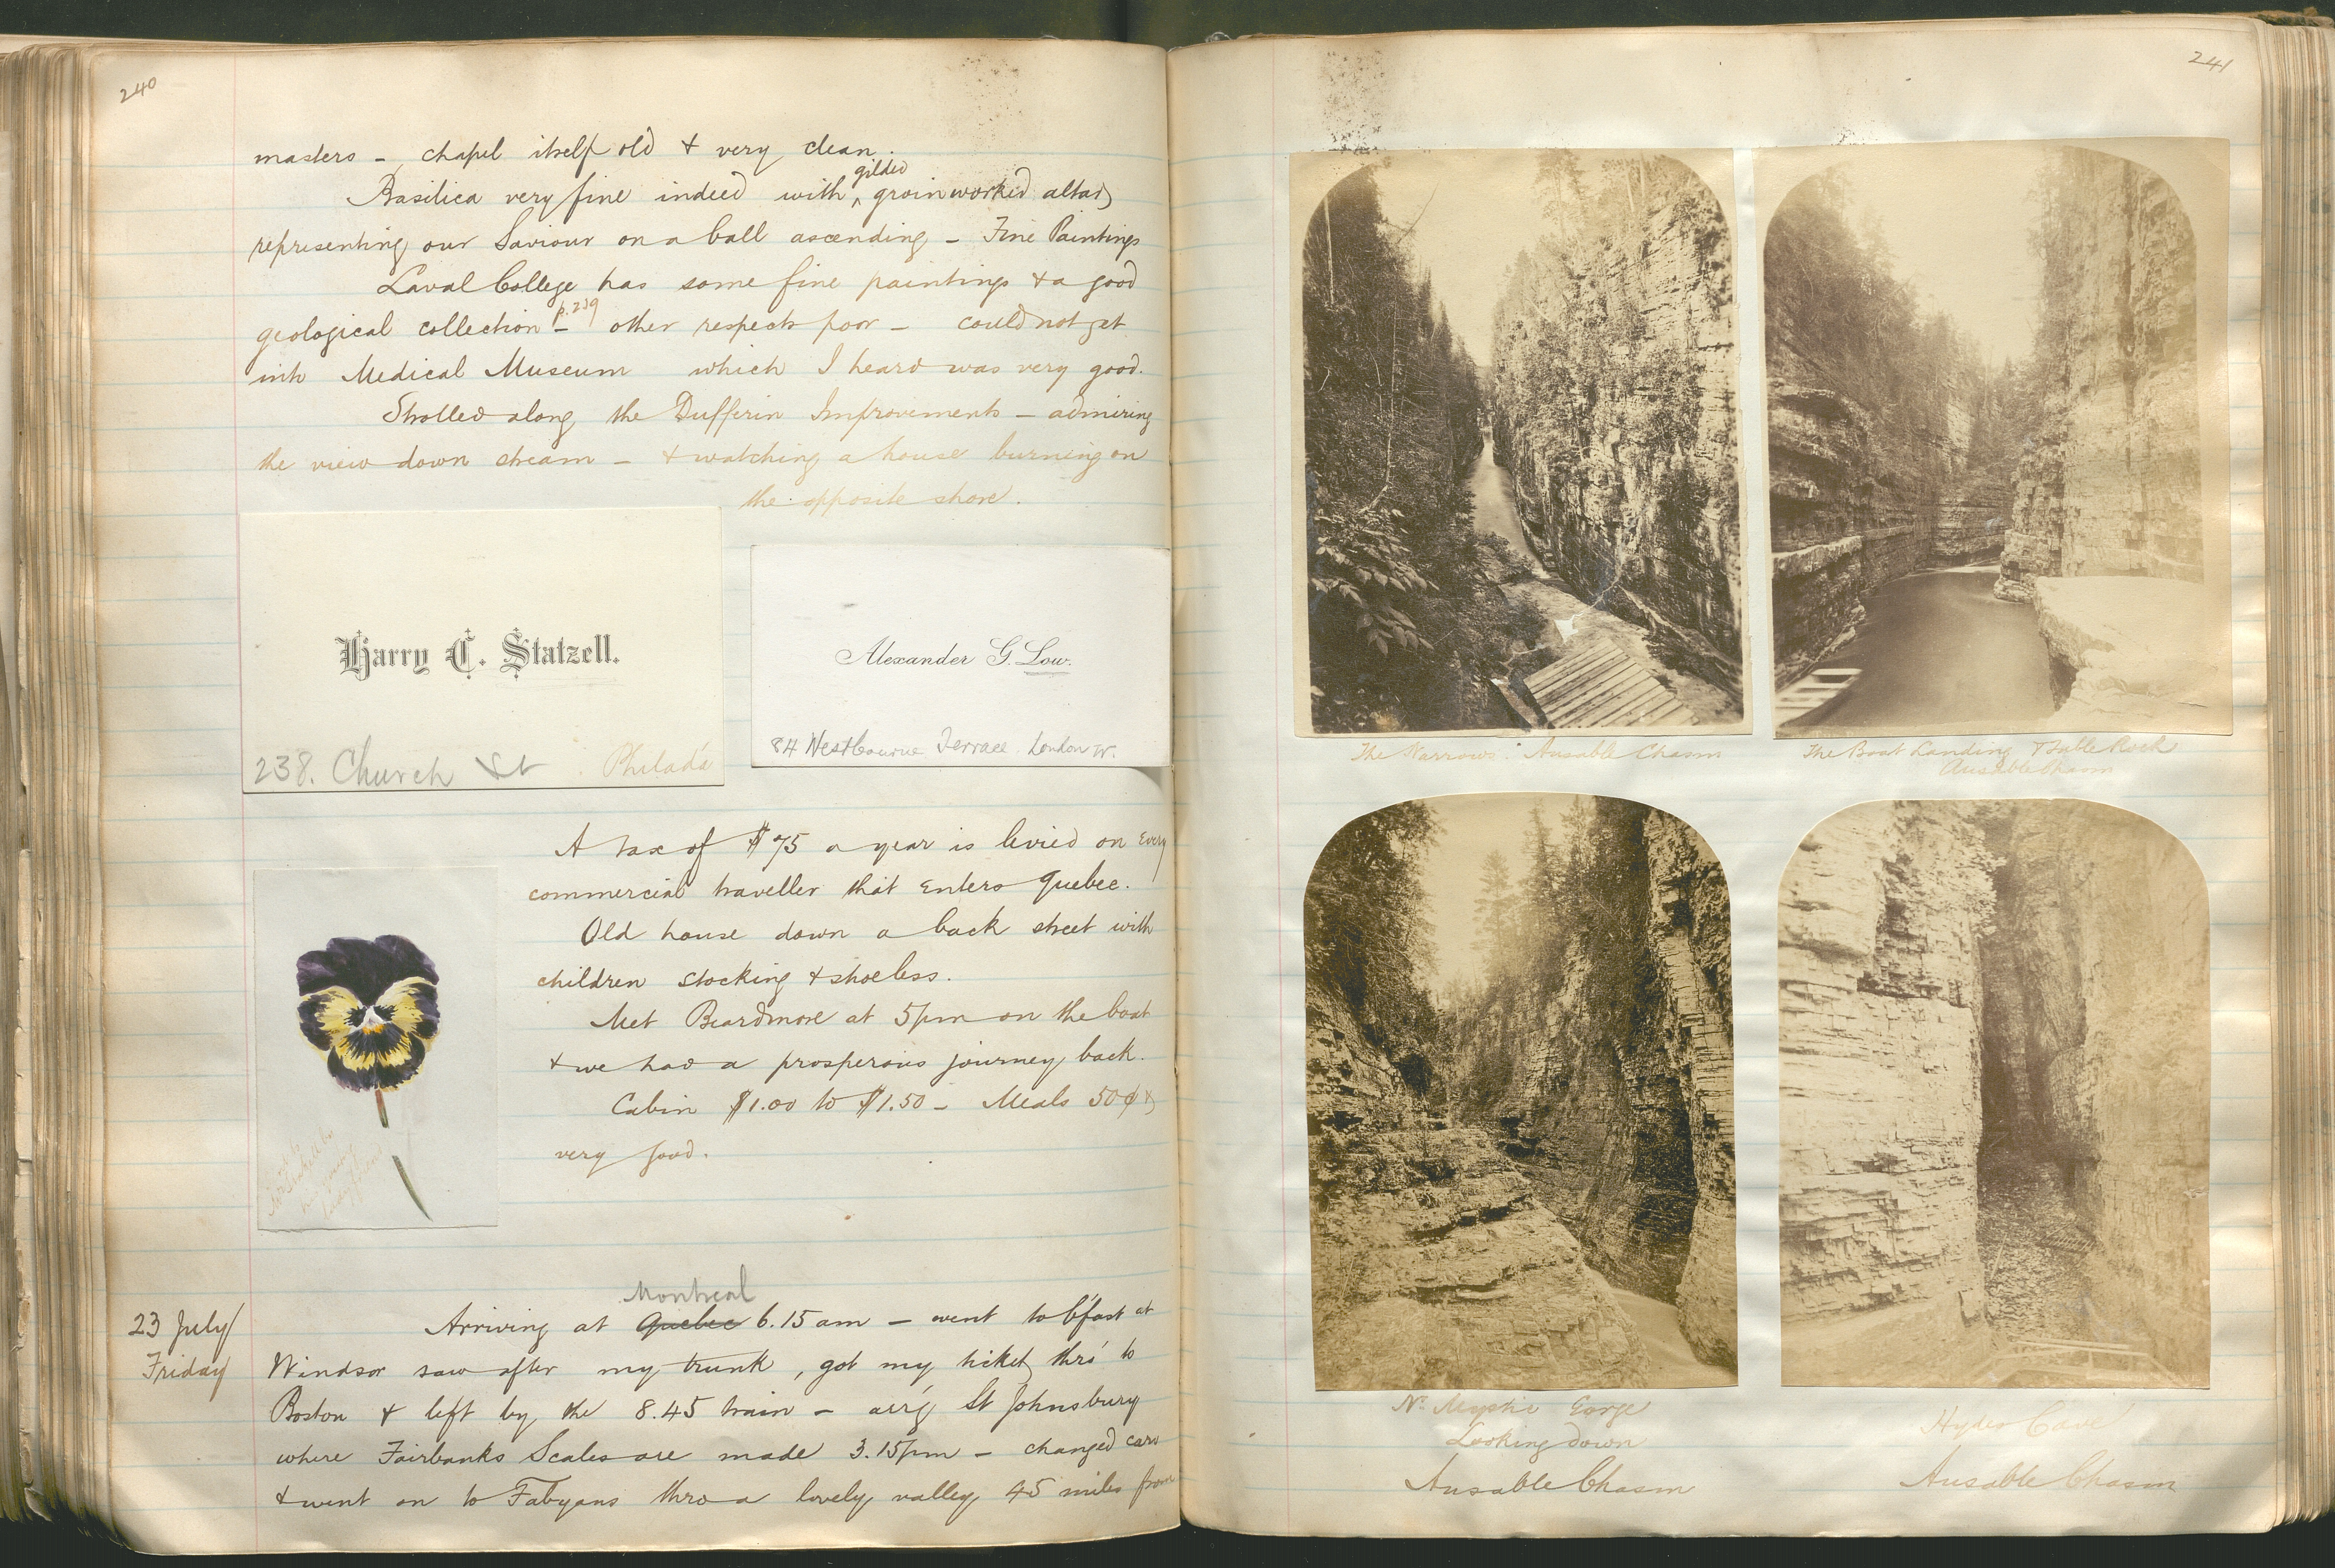 240
masters - chapel itself old & very clean.
gilded
Basilica very fine indeed with ^ groinworked altar
representing our Saviour on a ball ascending - Fine Paintings
Laval College has some fine paintings & a good
p. 239
geological collection - other respects poor - could not get
into Medical Museum which I heard was very good.
Strolled along the Dufferin Improvements - admiring
the view down stream - & watching a house burning on
the opposite shore.
Harry C. Statzell.
238. Church St. Philada
Alexander G. Low.
84 Westbourne Terrace London W.
A tax of $75 a year is levied on every
commercial traveller that enters Quebec.
Old house down a back street with
children stocking & shoeless.
Met Beardmore at 5pm on the boat
& we had a prosperous journey back.
Cabin $1.00 to $1.50 - Meals 50¢ &
very good.
23 July
Friday
Montreal
Arriving at Quebec 6.15 am - went to b'fast at
Windsor saw after my trunk, got my ticket thro' to
Boston & left by the 8.45 train - arrg St Johnsbury
where Fairbanks Scales are made 3.15pm - changed cars
& went on to Fabyans thro a lovely valley, 45 miles from
241
The Narrows. Ausable Chasm
The Boat Landing & Table Rock
Ausable Chasm
Gorge
Looking down
Ausable Chasm
Hydes Cave
Ausable Chasm